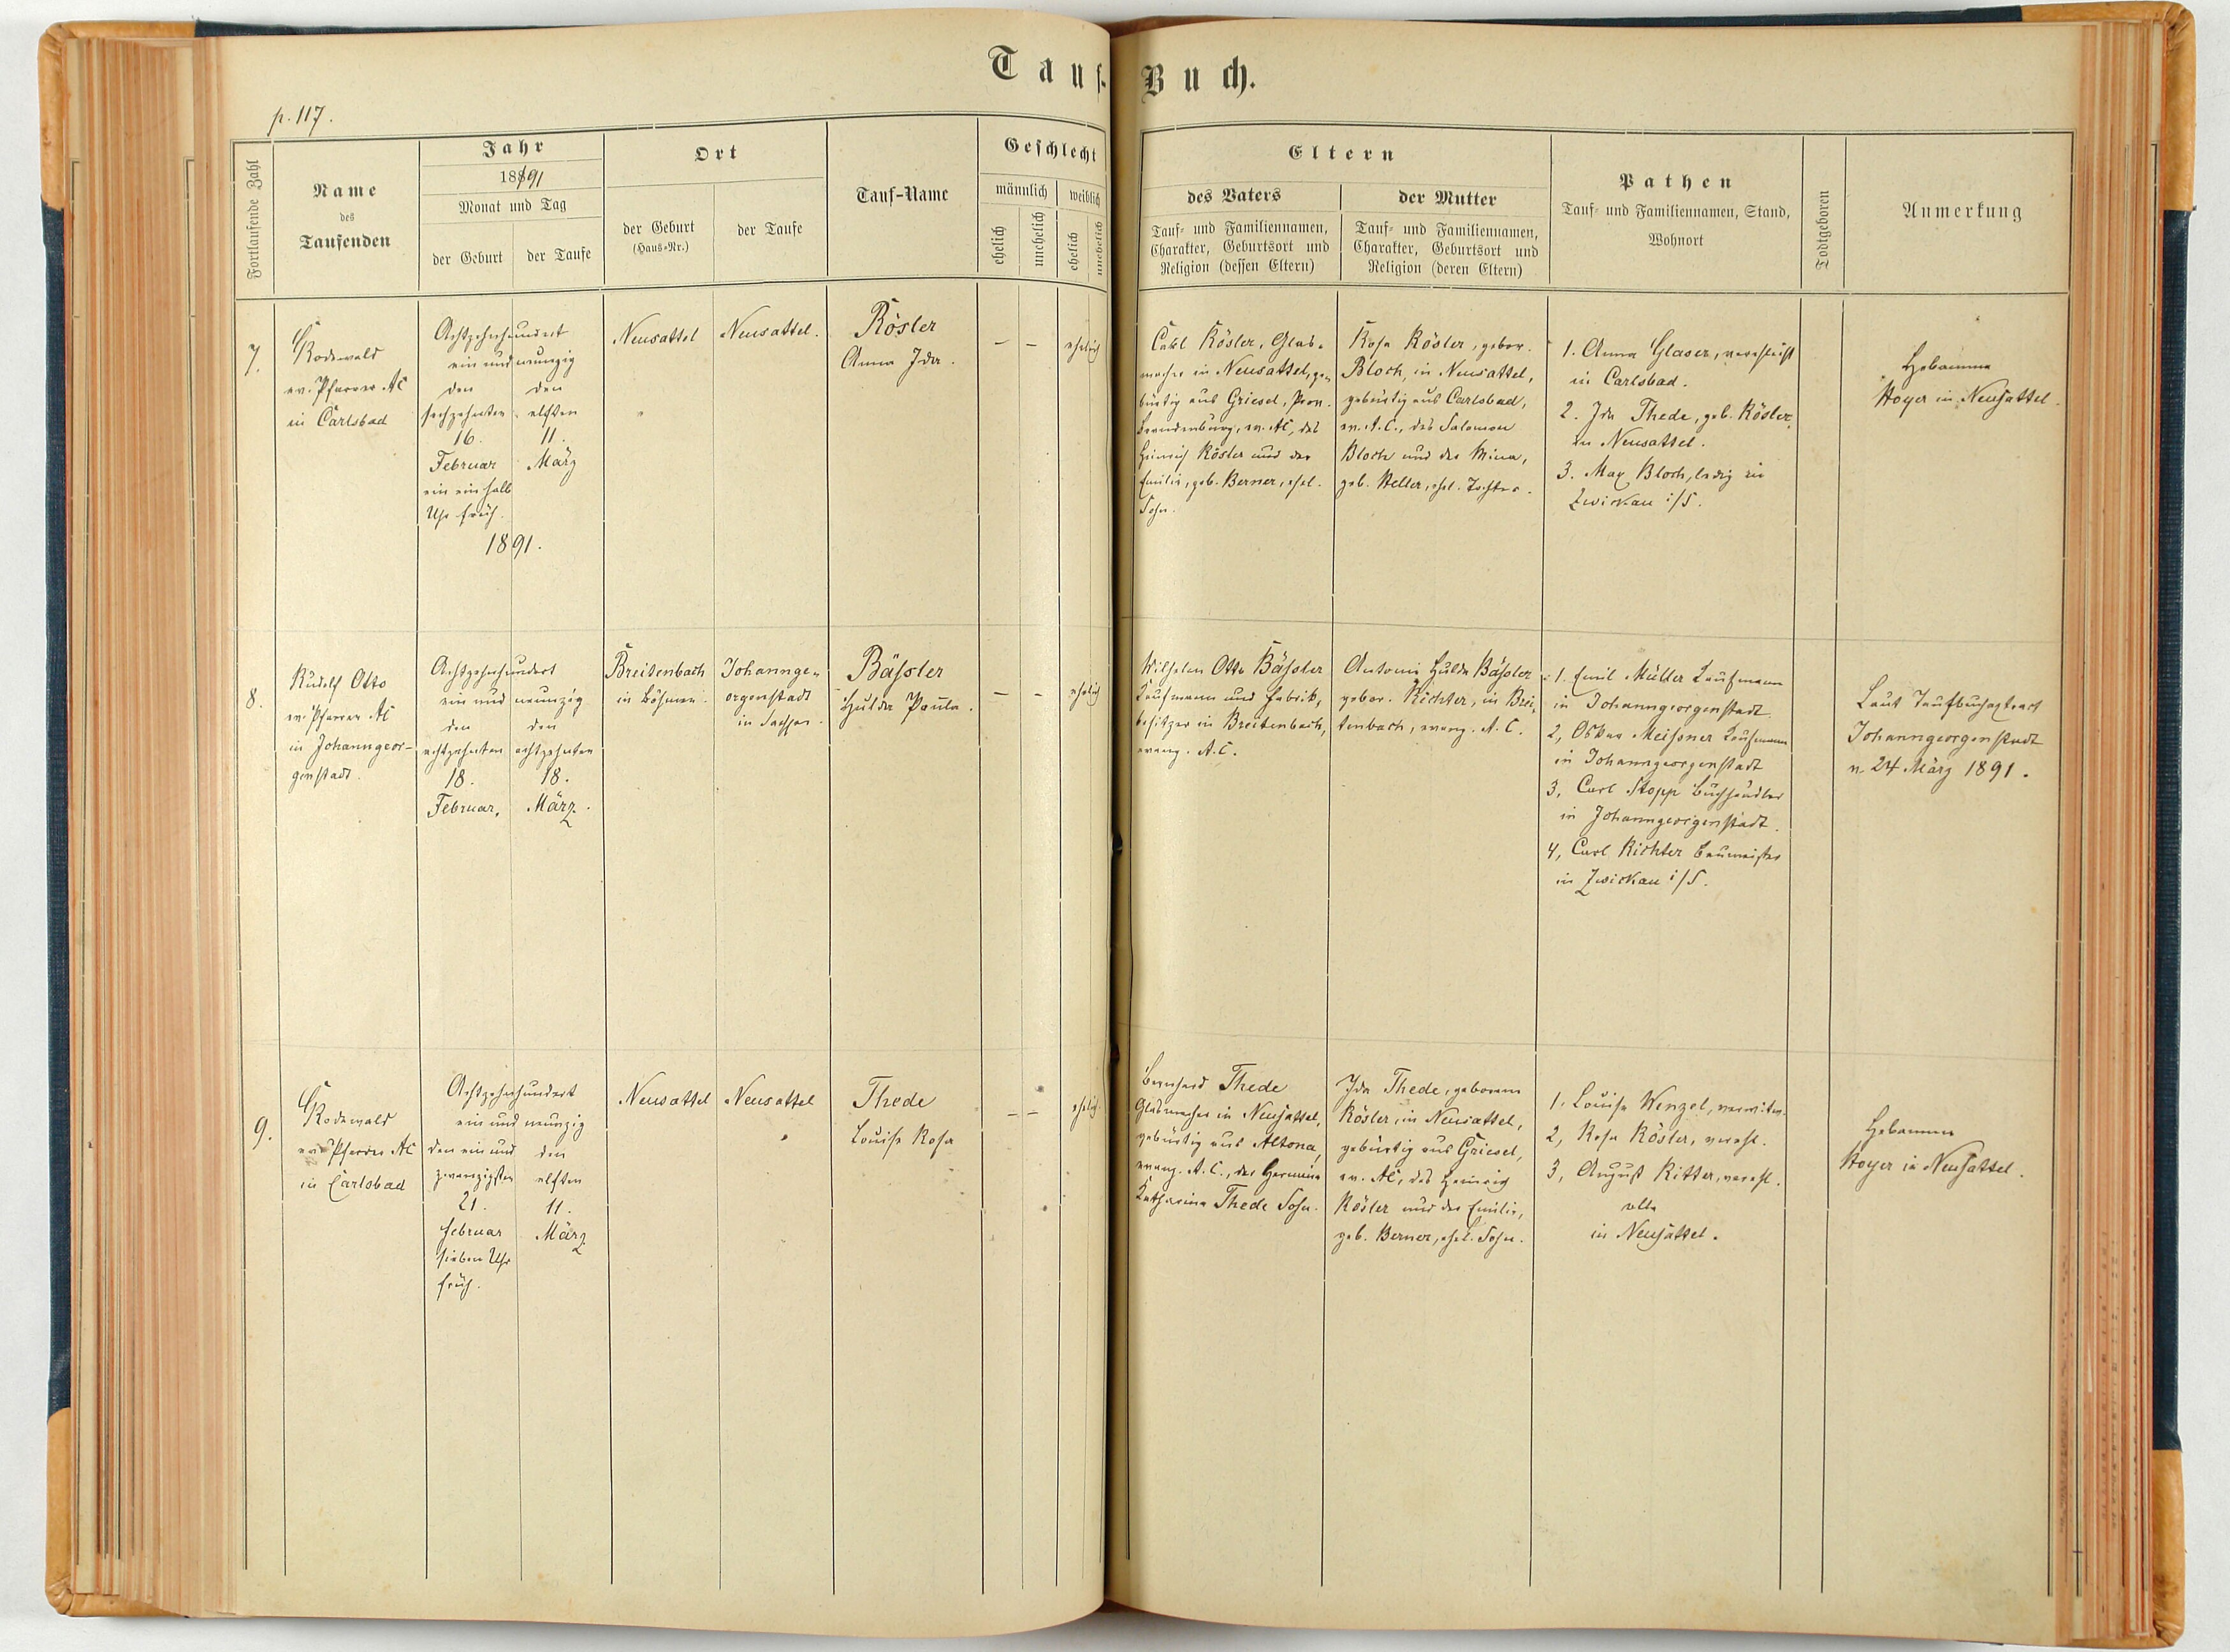 Tauf-Buch.
p. 117.
Fortlaufende Zahl
Name
des
Taufenden
Jahr
1891
Monat und Tag
der Geburt
der Taufe
Ort
der Geburt
(Haus-Nr.)
der Taufe
Tauf-Name
Geschlecht
männlich
weiblich
ehelich
unehelich
ehelich
unehelich
Eltern
des Vaters
Tauf- und Familiennamen,
Charakter, Geburtsort und
Religion (dessen Eltern)
der Mutter
Tauf- und Familiennamen,
Charakter, Geburtsort und
Religion (deren Eltern)
Pathen
Tauf- und Familiennamen, Stand,
Wohnort
Todtgeboren
Anmerkung
7.
Rodewald
ev. Pfarrer AC
in Carlsbad
Achtzehnhundert
ein und neunzig
den
sechzehnten
16.
Februar
ein ein halb
Uhr früh.
den
elften
11.
März
1891.
Neusattel
Neusattel.
Rösler
Anna Ida.
— —
ehelich
Carl Rösler, Glas-
macher in Neusattel, ge-
bürtig aus Griesel, Prov.
Brandenburg, ev. AC, des
Heinrich Rösler und der
Emilie, geb. Berner, ehel.
Sohn.
Rosa Rösler, gebor.
Bloch, in Neusattel,
gebürtig aus Carlsbad,
ev. A.C., des Salomon
Bloch und der Mina,
geb. Heller, ehel. Tochter.
1. Anna Glaser, verehelicht
in Carlsbad.
2. Ida Thede, geb. Rösler,
in Neusattel.
3. Max Bloch, ledig in
Zwickau i/S.
Hebamme
Hoyer in Neusattel.
8.
Rudolf Otto
ev. Pfarrer AC
in Johanngeor-
genstadt.
Achtzehnhundert
ein und neunzig
den
achtzehnten
18.
Februar,
den
achtzehnten
18.
März.
Breitenbach
in Böhmen.
Johannge-
orgenstadt
in Sachsen.
Bäßler
Hulda Paula.
— —
ehelich
Wilhelm Otto Bäßler
Kaufmann und Fabrik-
besitzer in Breitenbach,
evang. A.C.
Antonie Hulda Bäßler
gebor. Richter, in Brei-
tenbach, evang. A.C.
1. Emil Müller Kaufmann
in Johanngeorgenstadt.
2, Oskar Meißner Kaufmann
in Johanngeorgenstadt
3, Carl Stopp Buchhändler
in Johanngeorgenstadt.
4, Carl Richter Baumeister
in Zwickau i/S.
Laut Taufbuchextract
Johanngeorgenstadt
v. 24 März 1891.
9.
Rodewald
ev. Pfarrer AC
in Carlsbad
Achtzehnhundert
ein und neunzig
den ein und
zwanzigsten
21.
Februar
sieben Uhr
früh.
den
elften
11.
März
Neusattel
Neusattel
Thede
Louise Rosa
— —
ehelich
Bernhard Thede
Glasmacher in Neusattel,
gebürtig aus Altona,
evang. A.C., der Hermine
Katharina Thede Sohn.
Ida Thede, geborene
Rösler, in Neusattel,
gebürtig aus Griesel,
ev. AC, des Heinrich
Rösler und der Emilie,
geb. Berner, ehel. Sohn.
1. Louise Wenzel, verwitw.
2, Rosa Rösler, verehl.
3, August Ritter, verehl.
alle
in Neusattel.
Hebamme
Hoyer in Neusattel.